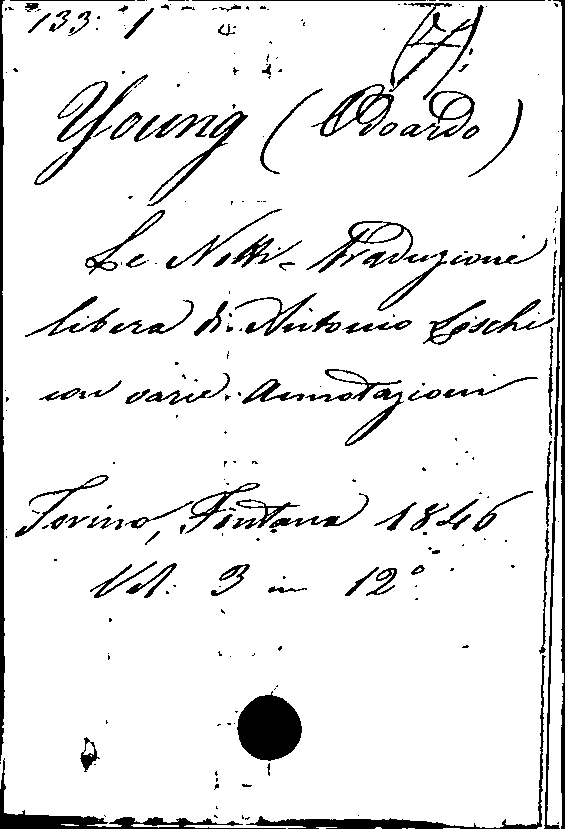 133. 1
Young (Odoardo)
Le Notti - Traduzione
libera di Antonio Loschi
con varie Annotazioni
Torino, Fontana 1846
Vol. 3 in 12°